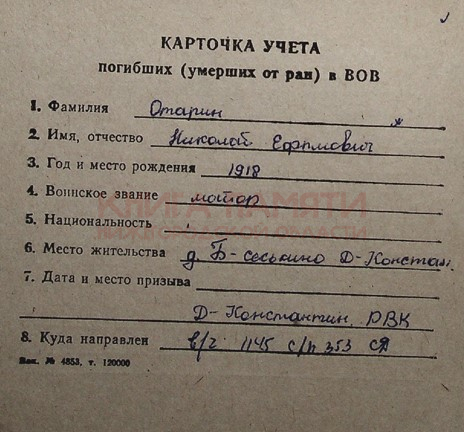 КАРТОЧКА УЧЕТА
погибших (умерших от ран) в ВОВ
1. Фамилия Отарин
2. Имя, отчество Николай Ефимович
3. Год и место рождения 1918
4. Воинское звание майор
5. Национальность
6. Место жительства д. Б-сеськино Д-Констан.
7. Дата и место призыва
Д-Константин. РВК
8. Куда направлен в/ч 1145 с/п 353 сд
Зак. № 4853, т. 120000
КНИГА ПАМЯТИ
ОБЛАСТИ